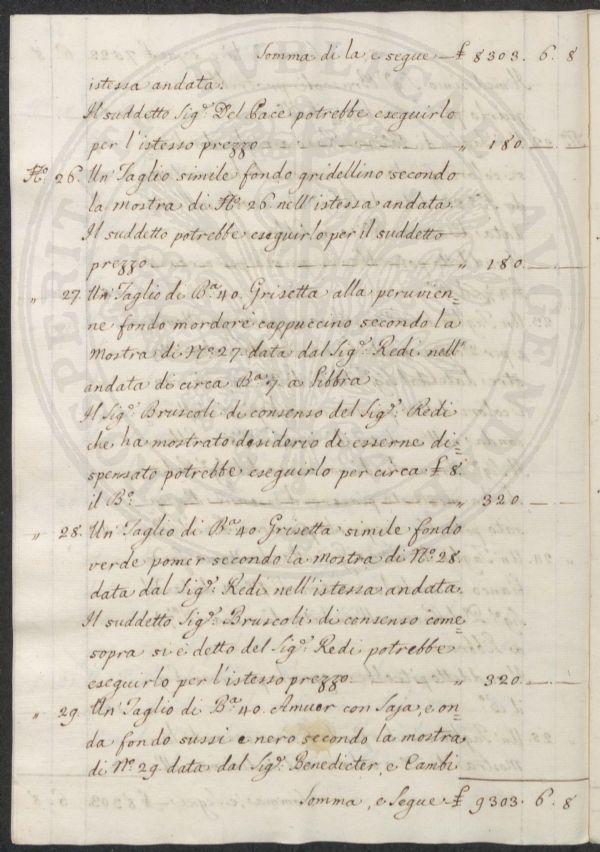 Somma di la e segue — £ 8303. 6. 8
istessa andata.
Il suddetto Sigr. Del Pace potrebbe eseguirlo
per l'istesso prezzo — — — — „ 180. — —
No. 26. Un Taglio simile fondo gridellino secondo
la mostra di No. 26 nell'istessa andata.
Il suddetto potrebbe eseguirlo per il suddetto
prezzo — — — — „ 180. — —
„ 27. Un Taglio di Ba. 40. Grisetta alla peruvien=
ne fondo mordorè cappuccino secondo la
Mostra di No. 27 data dal Sigr. Redi nell'
andata di circa Ba. 7 a Libbra
Il Sigr. Bruscoli di consenso del Sigr. Redi
che ha mostrato desiderio di esserne di=
spensato potrebbe eseguirlo per circa £ 8.
il Bo. — — — — „ 320. — —
„ 28. Un Taglio di Ba. 40. Grisetta simile fondo
verde pomer secondo la mostra di No. 28.
data dal Sigr. Redi nell'istessa andata.
Il suddetto Sigr. Bruscoli di consenso come
sopra si è detto del Sigr. Redi potrebbe
eseguirlo per l'istesso prezzo. — „ 320. — —
„ 29. Un Taglio di Ba. 40. Amuer con Saja, e on=
da fondo sussi e nero secondo la mostra
di No. 29 data dal Sigr. Benedicter, e Cambi
Somma, e Segue £ 9303. 6. 8